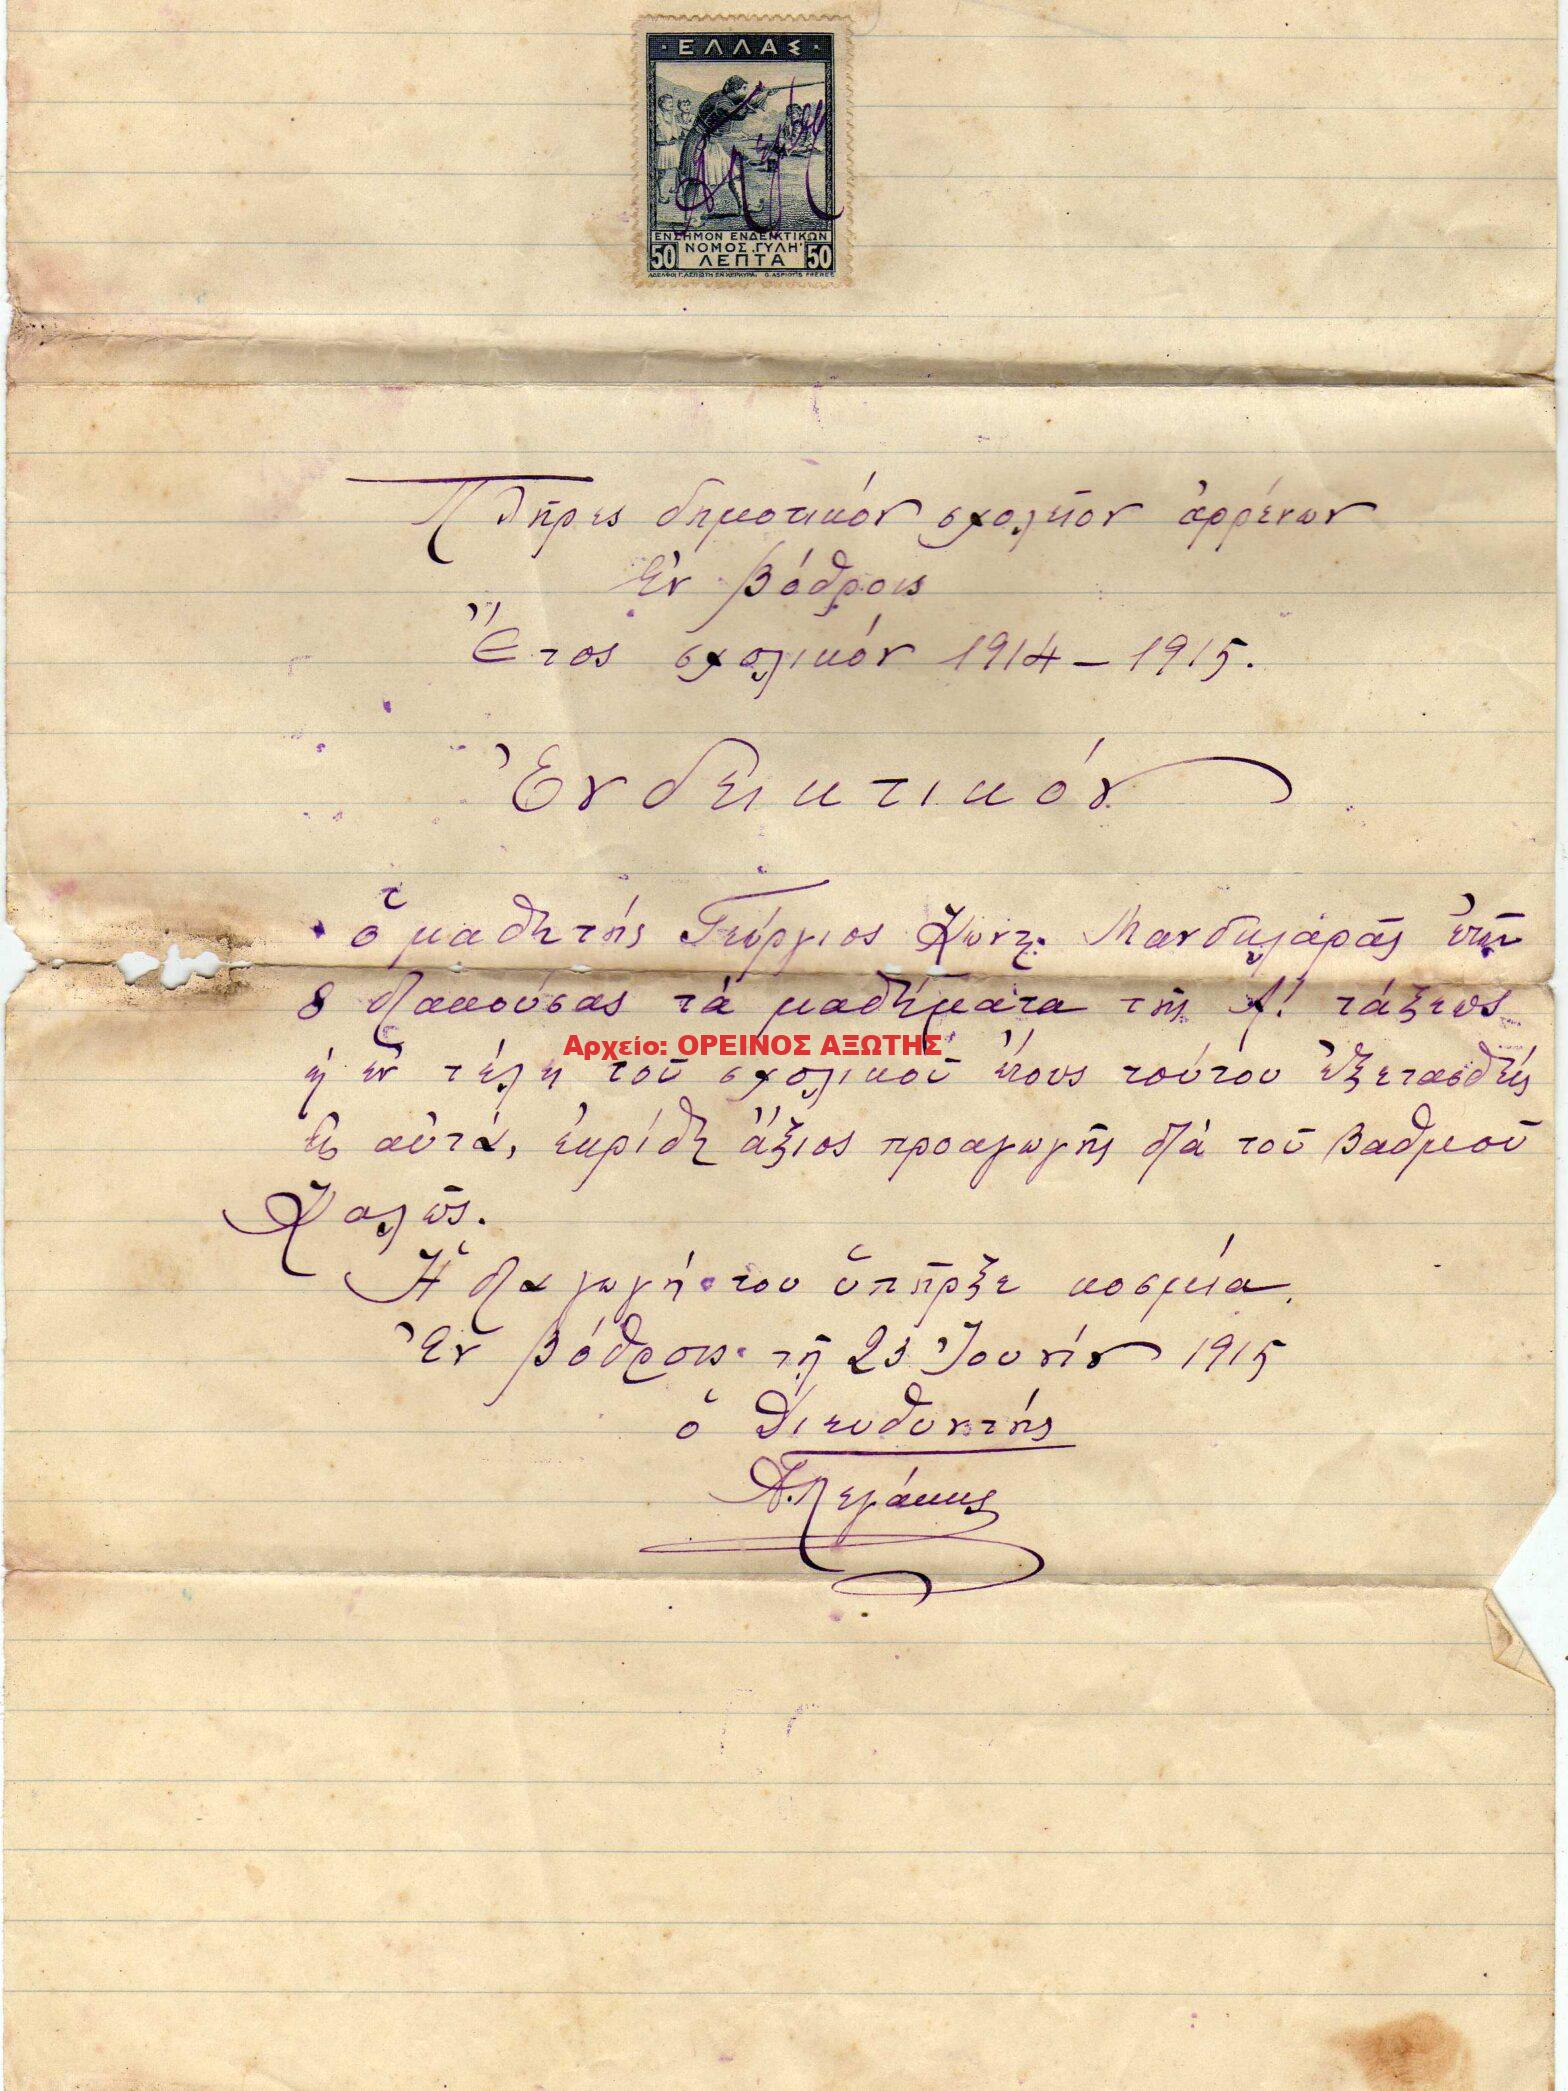 ΕΛΛΑΣ
ΕΝΣΗΜΟΝ ΕΝΔΕΙΚΤΙΚΩΝ
ΝΟΜΟΣ ,ΓΥΛΗ'
50 ΛΕΠΤΑ 50
ΑΔΕΛΦΟΙ Γ. ΑΣΠΙΩΤΗ ΕΝ ΚΕΡΚΥΡΑ. G. ASPIOTIS FRÈRES
Πλῆρες δημοτικόν σχολεῖον ἀρρένων
Ἐν Βόθροις
Ἔτος σχολικόν 1914–1915.
Ἐνδεικτικόν
Ὁ μαθητής Γεώργιος Κωντ. Μανδηλαρᾶς ἐτῶν
8 διακούσας τά μαθήματα τῆς Α! τάξεως
ἐν τέλει τοῦ σχολικοῦ ἔτους τούτου ἐξετασθείς
εἰς αὐτά, ἐκρίθη ἄξιος προαγωγῆς διά τοῦ βαθμοῦ
Καλῶς.
Ἡ διαγωγή του ὑπῆρξε κοσμία.
Ἐν Βόθροις τῇ 23 Ἰουνίου 1915
ὁ Διευθυντής
Αρχείο: ΟΡΕΙΝΟΣ ΑΞΩΤΗΣ